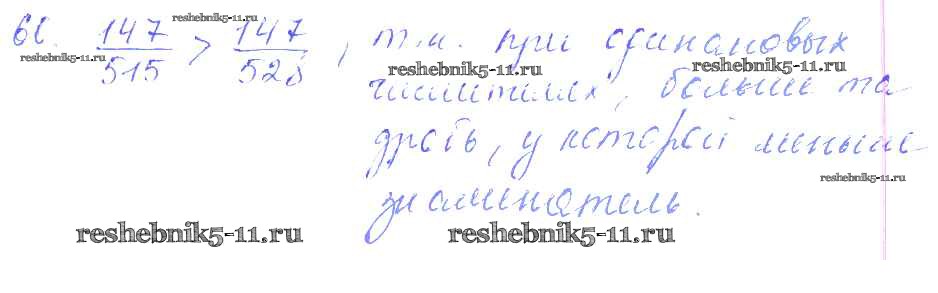 reshebnik5-11.ru
бб. 147/515 > 147/528, т.к. при одинаковых
reshebnik5-11.ru reshebnik5-11.ru reshebnik5-11.ru
числителях, больше та
дробь, у которой меньше
reshebnik5-11.ru
знаменатель.
reshebnik5-11.ru reshebnik5-11.ru